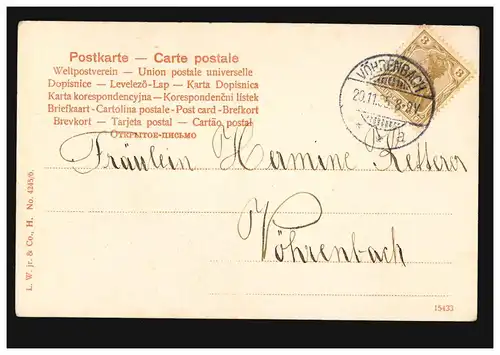 Postkarte — Carte postale
Weltpostverein — Union postale universelle
Dopisnice — Levelező-Lap — Karta Dopisnica
Karta korespondencyjna — Korespondenční lístek
Briefkaart - Cartolina postale - Post card - Brefkort
Brevkort — Tarjeta postal — Cartão postal
ОТКРЫТОЕ-ПИСЬМО
VÖHRENBACH
3 3
a
Fräulein Hermine Ketterer
Vöhrenbach
L. W. jr. & Co., H. No. 4245/6.
15433